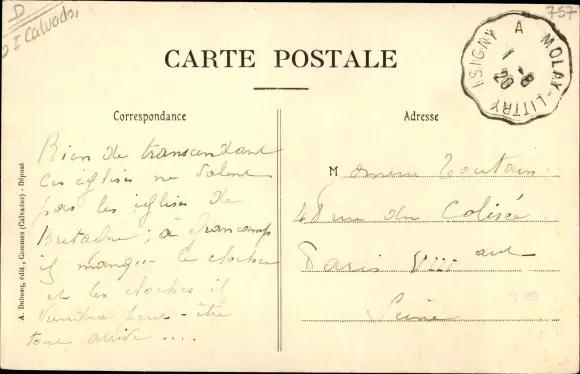 D
I Calvados
757
ISIGNY A MOLAY-LITTRY
1 -8
20
CARTE POSTALE
Correspondance
Adresse
Rien de transcendant
Ces églises ne valent
pas les églises de
Bretagne ; à Grancamp
il manque le clocher
et les cloches il
viendra peut-être
tout arrive ....
Monsieur Toutain
48 rue du Colisée
Paris VIII arrt
Seine
A. Dubosq, édit., Commes (Calvados) - Déposé